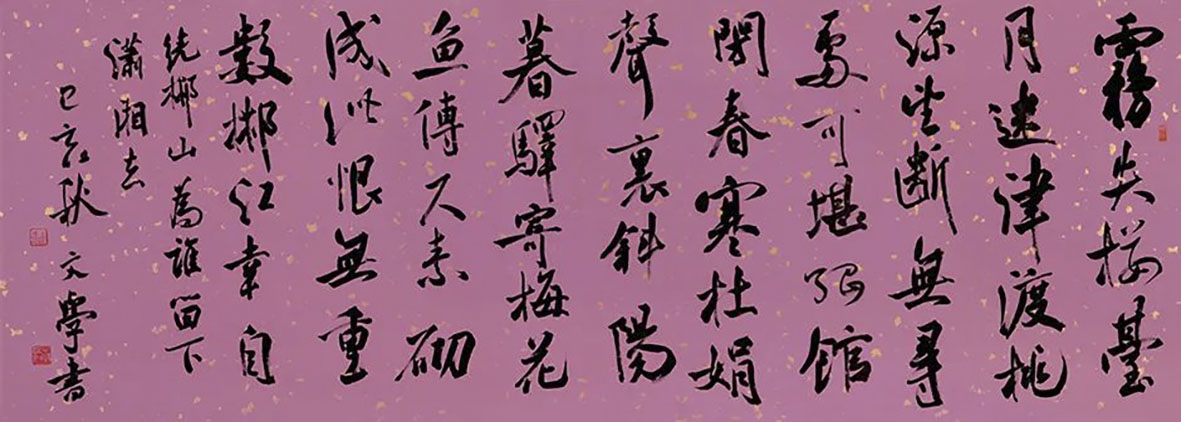 霧失樓臺
月迷津渡桃
源望斷無尋
處可堪孤館
閉春寒杜娟
聲裏斜陽
暮驛寄梅花
魚傳尺素砌
成此恨無重
數郴江幸自
繞郴山為誰留下
瀟湘去
己亥秋文學書